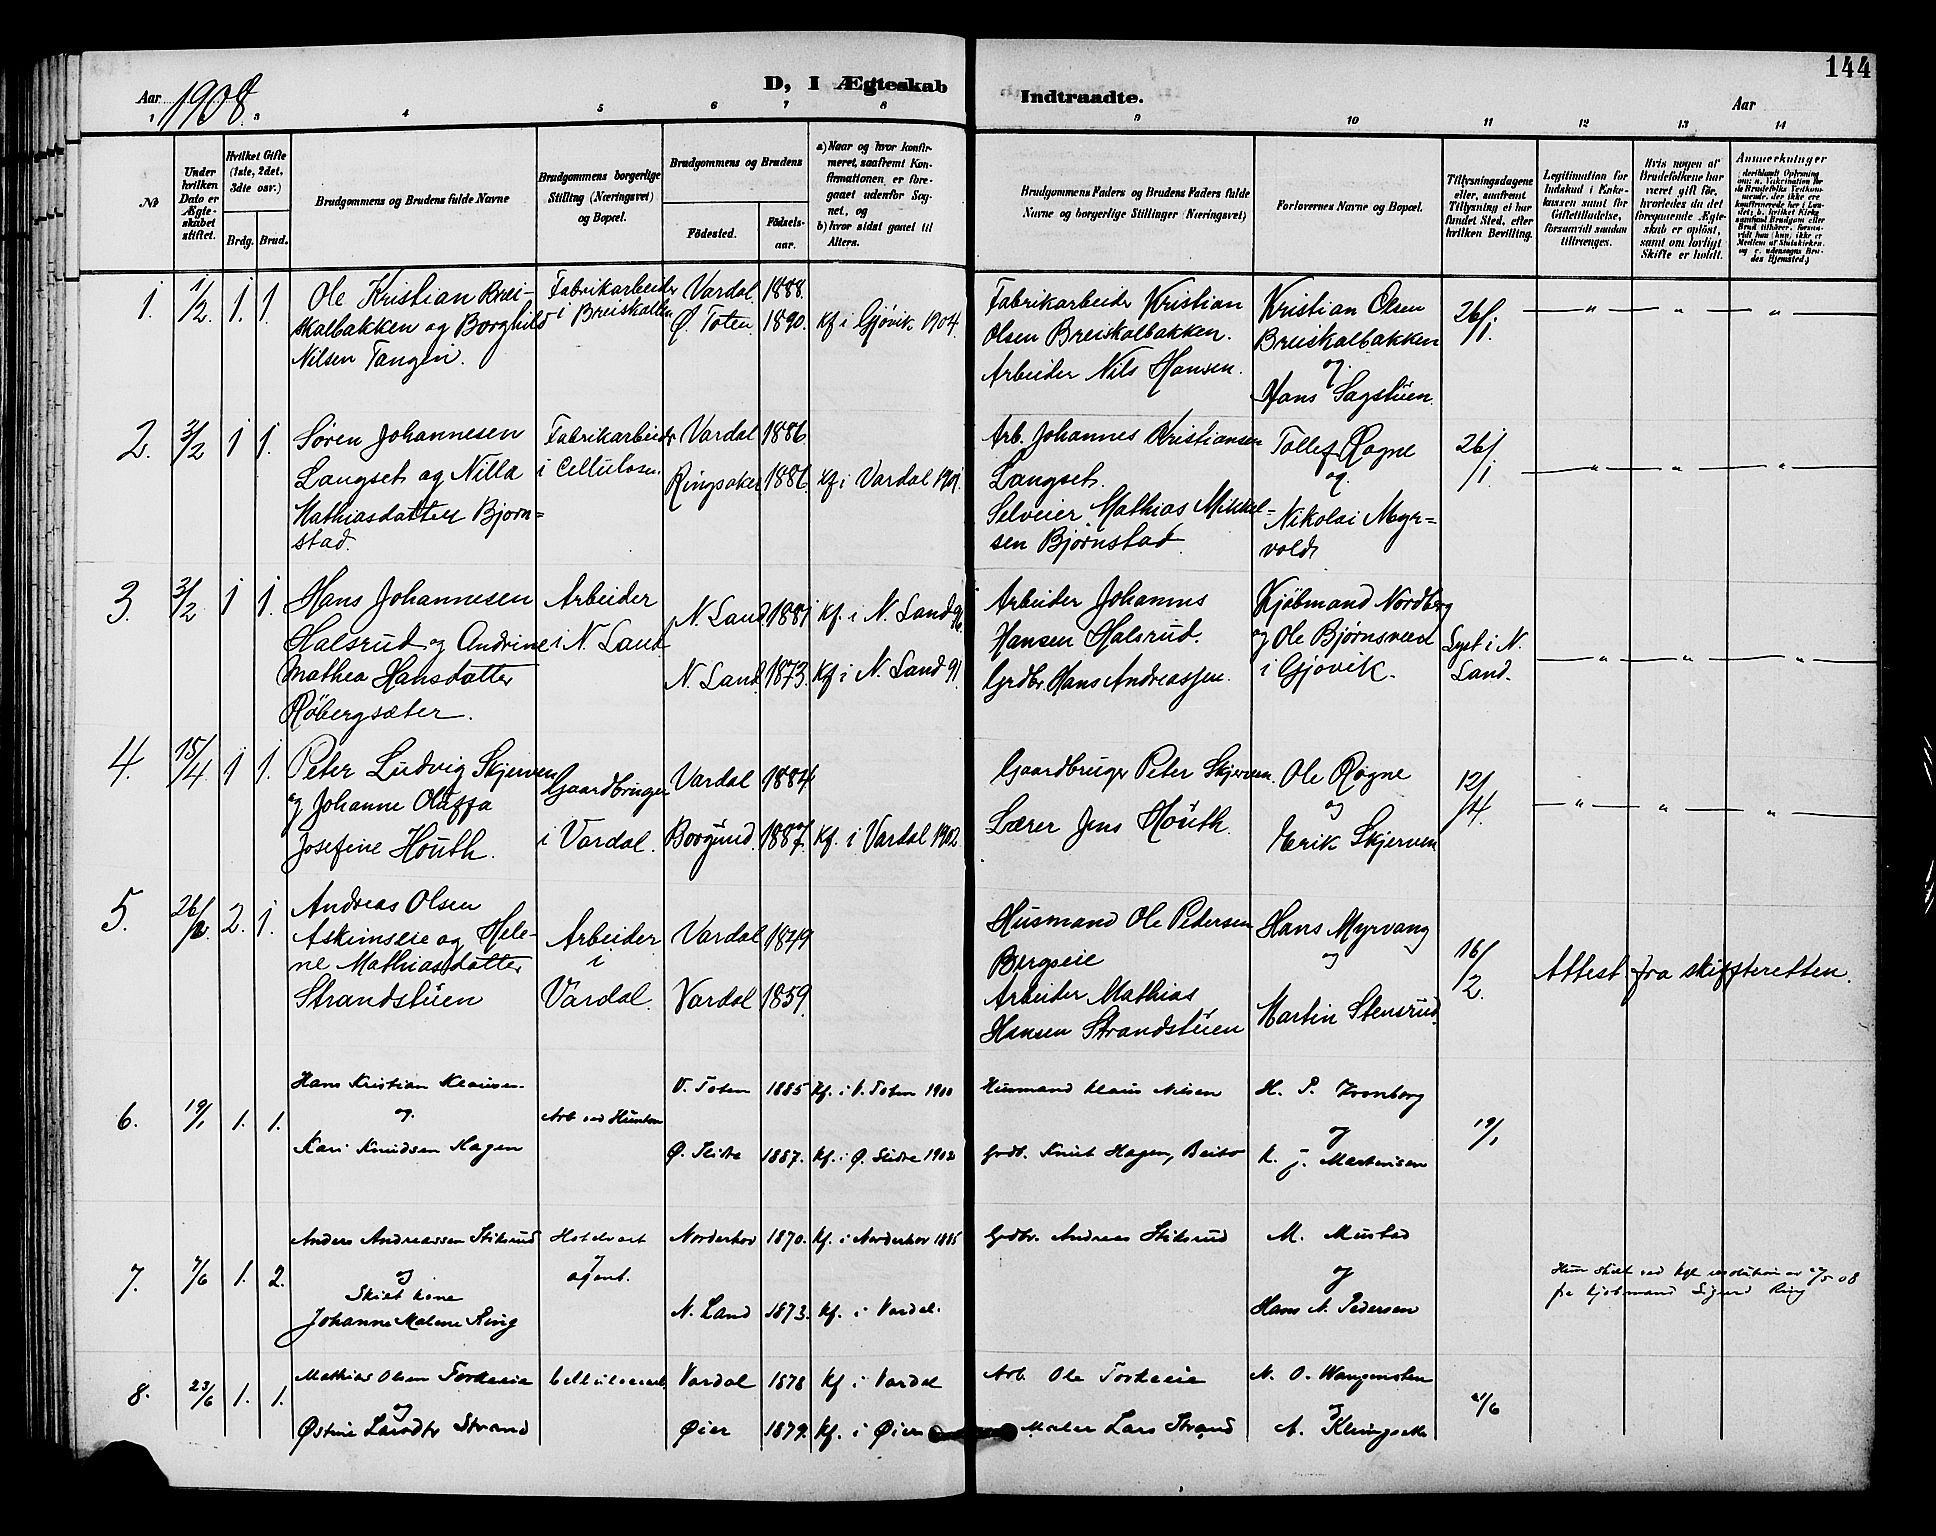 144
Aar 1908.
D, I Ægteskab Indtraadte.
Aar
1 3 4 5 6 7 8 9 10 11 12 13 14
№
Under hvilken Dato er Ægteskabet stiftet.
Hvilket Gifte (1ste, 2det, 3die osv.)
Brdg. Brud.
Brudgommens og Brudens fulde Navne
Brudgommens borgerlige Stilling (Næringsvei) og Bopæl.
Brudgommens og Brudens
Fødested.
Fødselsaar.
a) Naar og hvor konfirmeret, saafremt Konfirmationen er foregaaet udenfor Sognet, og
b) hvor sidst gaaet til Alters.
Brudgommens Faders og Brudens Faders fulde Navne og borgerlige Stillinger (Næringsvei)
Forlovernes Navne og Bopæl.
Tillysningsdagene eller, saafremt Tillysning ei har fundet Sted, efter hvilken Bevilling.
Legitimation for Indskud i Enkekassen samt for Giftetilladelse, forsaavidt saadan tiltrænges.
Hvis nogen af Brudefolkene har været gift før, hvorledes da det foregaaende Ægteskab er opløst, samt om lovligt Skifte er holdt.
Anmerkninger
1. 1/2. 1. 1.
Ole Kristian Brei-
skalbakken og Borghild
Nilsen Tangen.
Fabrikarbeider
i Breiskallen
Vardal 1888.
Ø. Toten 1890. Kf. i Gjøvik 1904.
Fabrikarbeider Kristian
Olsen Breiskalbakken.
Arbeider Nils Hansen.
Kristian Olsen
Breiskalbakken
og
Hans Sagstuen.
26/1. — " — " — " —
2. 3/2 1 1.
Søren Johannesen
Langset og Nilla
Mathiasdatter Bjørn=
stad.
Fabrikarbeider
i Cellulosen.
Vardal 1886
Ringsaker 1886. Kf i Vardal 1901.
Arb. Johannes Kristiansen
Langset.
Selveier Mathias Mikkel-
sen Bjørnstad
Tollef Rogne
og
Nikolai Myr=
vold
26/1. — " — " — " —
3. 3/2 1 1.
Hans Johannesen
Halsrud og Andrine
Mathea Hansdatter
Røbergsæter.
Arbeider
i N. Land
N. Land 1881 Kf. i N. Land 96.
N. Land 1873. Kf i N. Land 91.
Arbeider Johannes
Hansen Halsrud.
Grdbr. Hans Andreassen.
Kjøbmand Nordberg
og Ole Bjørnsveen
i Gjøvik.
Lyst i N.
Land. — " — " — " —
4. 15/4. 1 1.
Peter Ludvig Skjerven
og Johanne Olaffa
Josefine Houth.
Gaardbruger
i Vardal.
Vardal 1884
Borgund. 1887. Kf. i Vardal 1902
Gaardbruger Peter Skjerven.
Lærer Jens Houth.
Ole Rogne
og
Erik Skjerven
12/4. — " — " — " —
5. 26/2. 2. 1.
Andreas Olsen
Askimseie og Hele-
ne Mathiasdatter
Strandstuen
Arbeider
i
Vardal.
Vardal 1849
Vardal 1859.
Husmand Ole Petersen
Bergseie
Arbeider Mathias
Hansen Strandstuen
Hans Myrvang
og
Martin Stensrud.
16/2. Attest fra skifteretten.
6. 19/1 1. 1.
Hans Kristian Klausen.
og.
Kari Knudsen Hagen
Arb ved Hunton
V. Toten 1885 Kf. i V. Toten 1900
Ø. Slidre 1887. Kf. i Ø. Slidre 1902
Husmand Klaus Nilsen
Grdb. Knut Hagen, Beito
H. P. Kronborg
og
K. J. Martinsen
19/1
7. 7/6 1. 2.
Anders Andreassen Stiksrud
og
Skilt kone
Johanne Malene Ring
Hotelvert
og
agent.
Norderhov 1870. Kf. i Norderhov 1885
N. Land 1873. Kf. i Vardal.
Grdbr. Andreas Stiksrud
M. Mustad
og
Hans N. Pedersen
Hun skilt ved kgl resolution av /5 08
fra kjøbmand Sigurd Ring
8. 23/6 1. 1.
Mathias Olsen Torkeeie
og
Østine Larsdtr Strand
Cellulosearb.
Vardal 1878 Kf i Vardal
Øier 1879. Kf. i Øier
Arb. Ole Torkeeie
Maler Lars Strand
N. O. Wangensten
og
A.
21/6